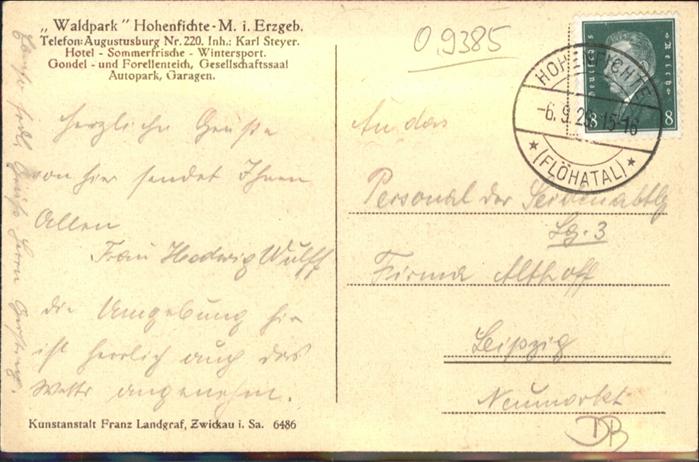 „Waldpark" Hohenfichte-M. i. Erzgeb.
Telefon: Augustusburg Nr. 220. Inh.: Karl Steyer.
Hotel - Sommerfrische - Wintersport.
Gondel - und Forellenteich, Gesellschaftssaal
Autopark, Garagen.
Herzliche Grüße
von hier sendet Ihnen
Allen
Frau Hedwig Wulff
die Umgebung hier
ist herrlich auch das
Wetter angenehm.
Kunstanstalt Franz Landgraf, Zwickau i. Sa. 6486
0,9385
Deutsches Reich
8 8
HOHENFICHTE
-6.9.28.15-16
★ (FLÖHATAL) ★
An das
Personal der Seidenabtlg
Lg. 3
Firma Althoff
Leipzig
Neumarkt